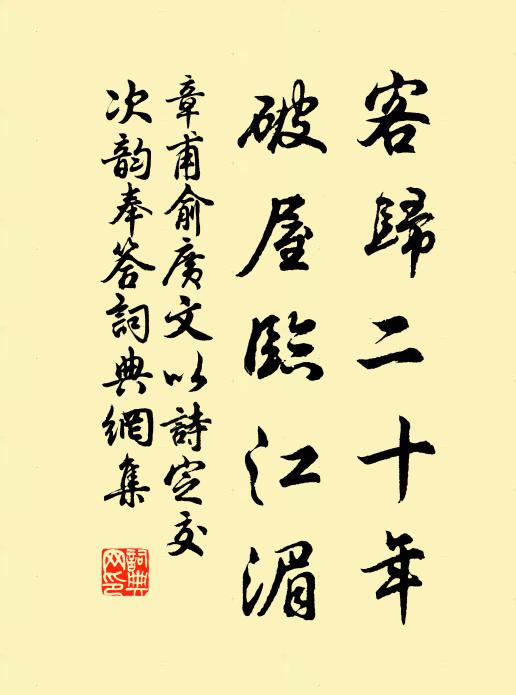 客歸二十年
破屋臨江湄
章甫俞廣文以詩定交
次韵奉答詞典網集
詞典网印